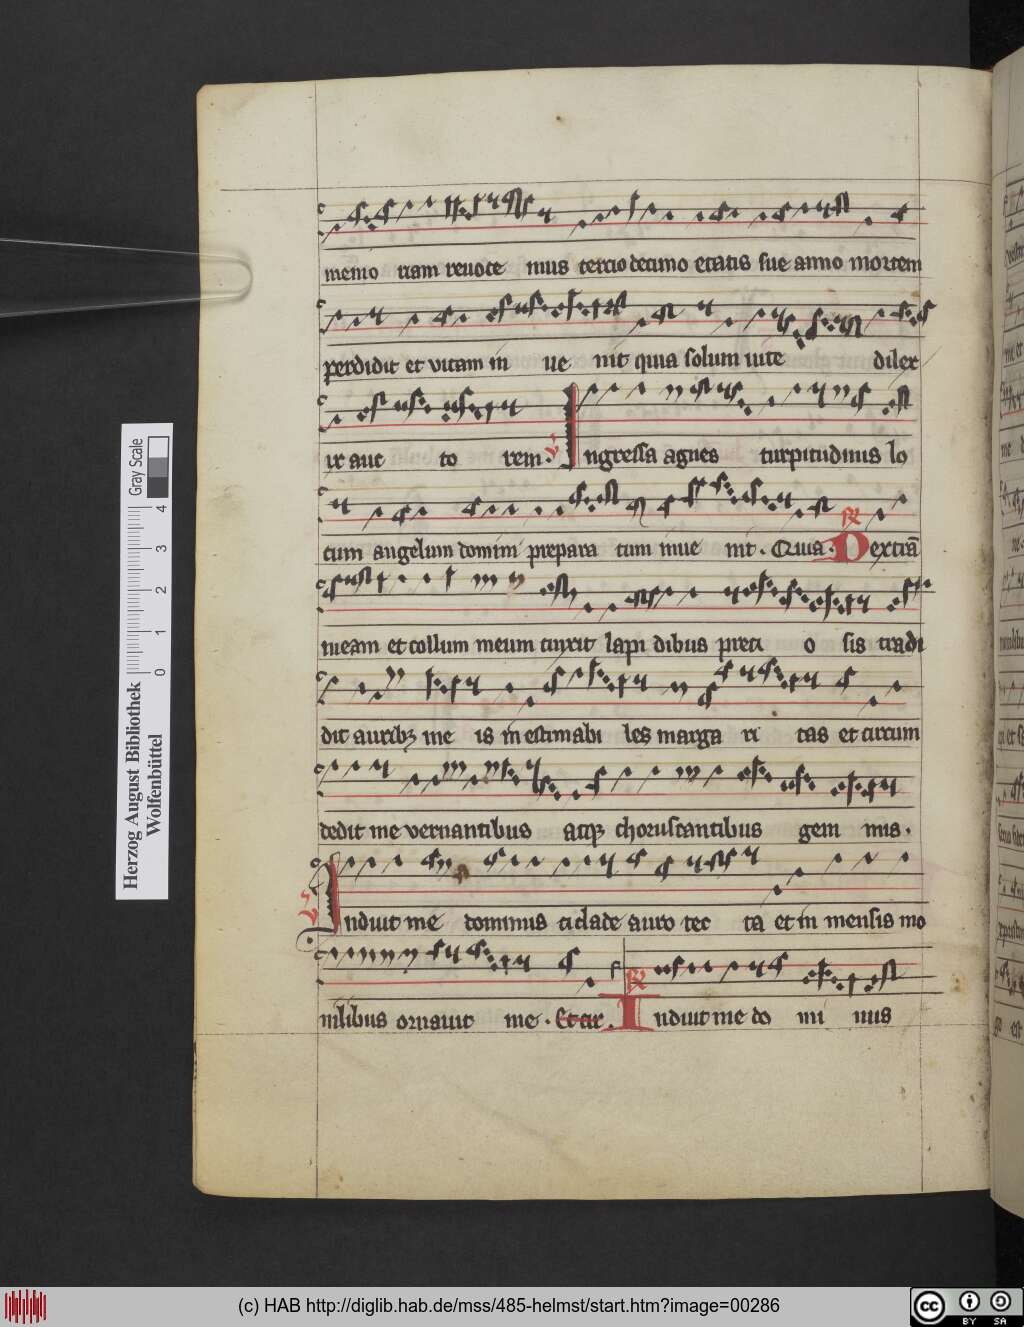 memo riam revoce mus tercio decimo etatis sue anno mortem
perdidit et vitam in ve nit quia solum vite dilex
ix auc to rem. V Ingressa agnes turpitudinis lo
cum angelum domini prepara tum inve nit. Quia. R Dextrā
meam et collum meum cinxit lapi dibus preci o sis tradi
dit auribꝫ me is in estimabi les marga ri tas et circum
dedit me vernantibus atqꝫ choruscantibus gem mis.
V Induit me dominus ciclade auro tec ta et in mensis mo
nilibus ornavit me. Et cir. R Induit me do mi nus
Herzog August Bibliothek
Wolfenbüttel
Gray Scale
0 1 2 3 4
(c) HAB http://diglib.hab.de/mss/485-helmst/start.htm?image=00286
cc BY SA